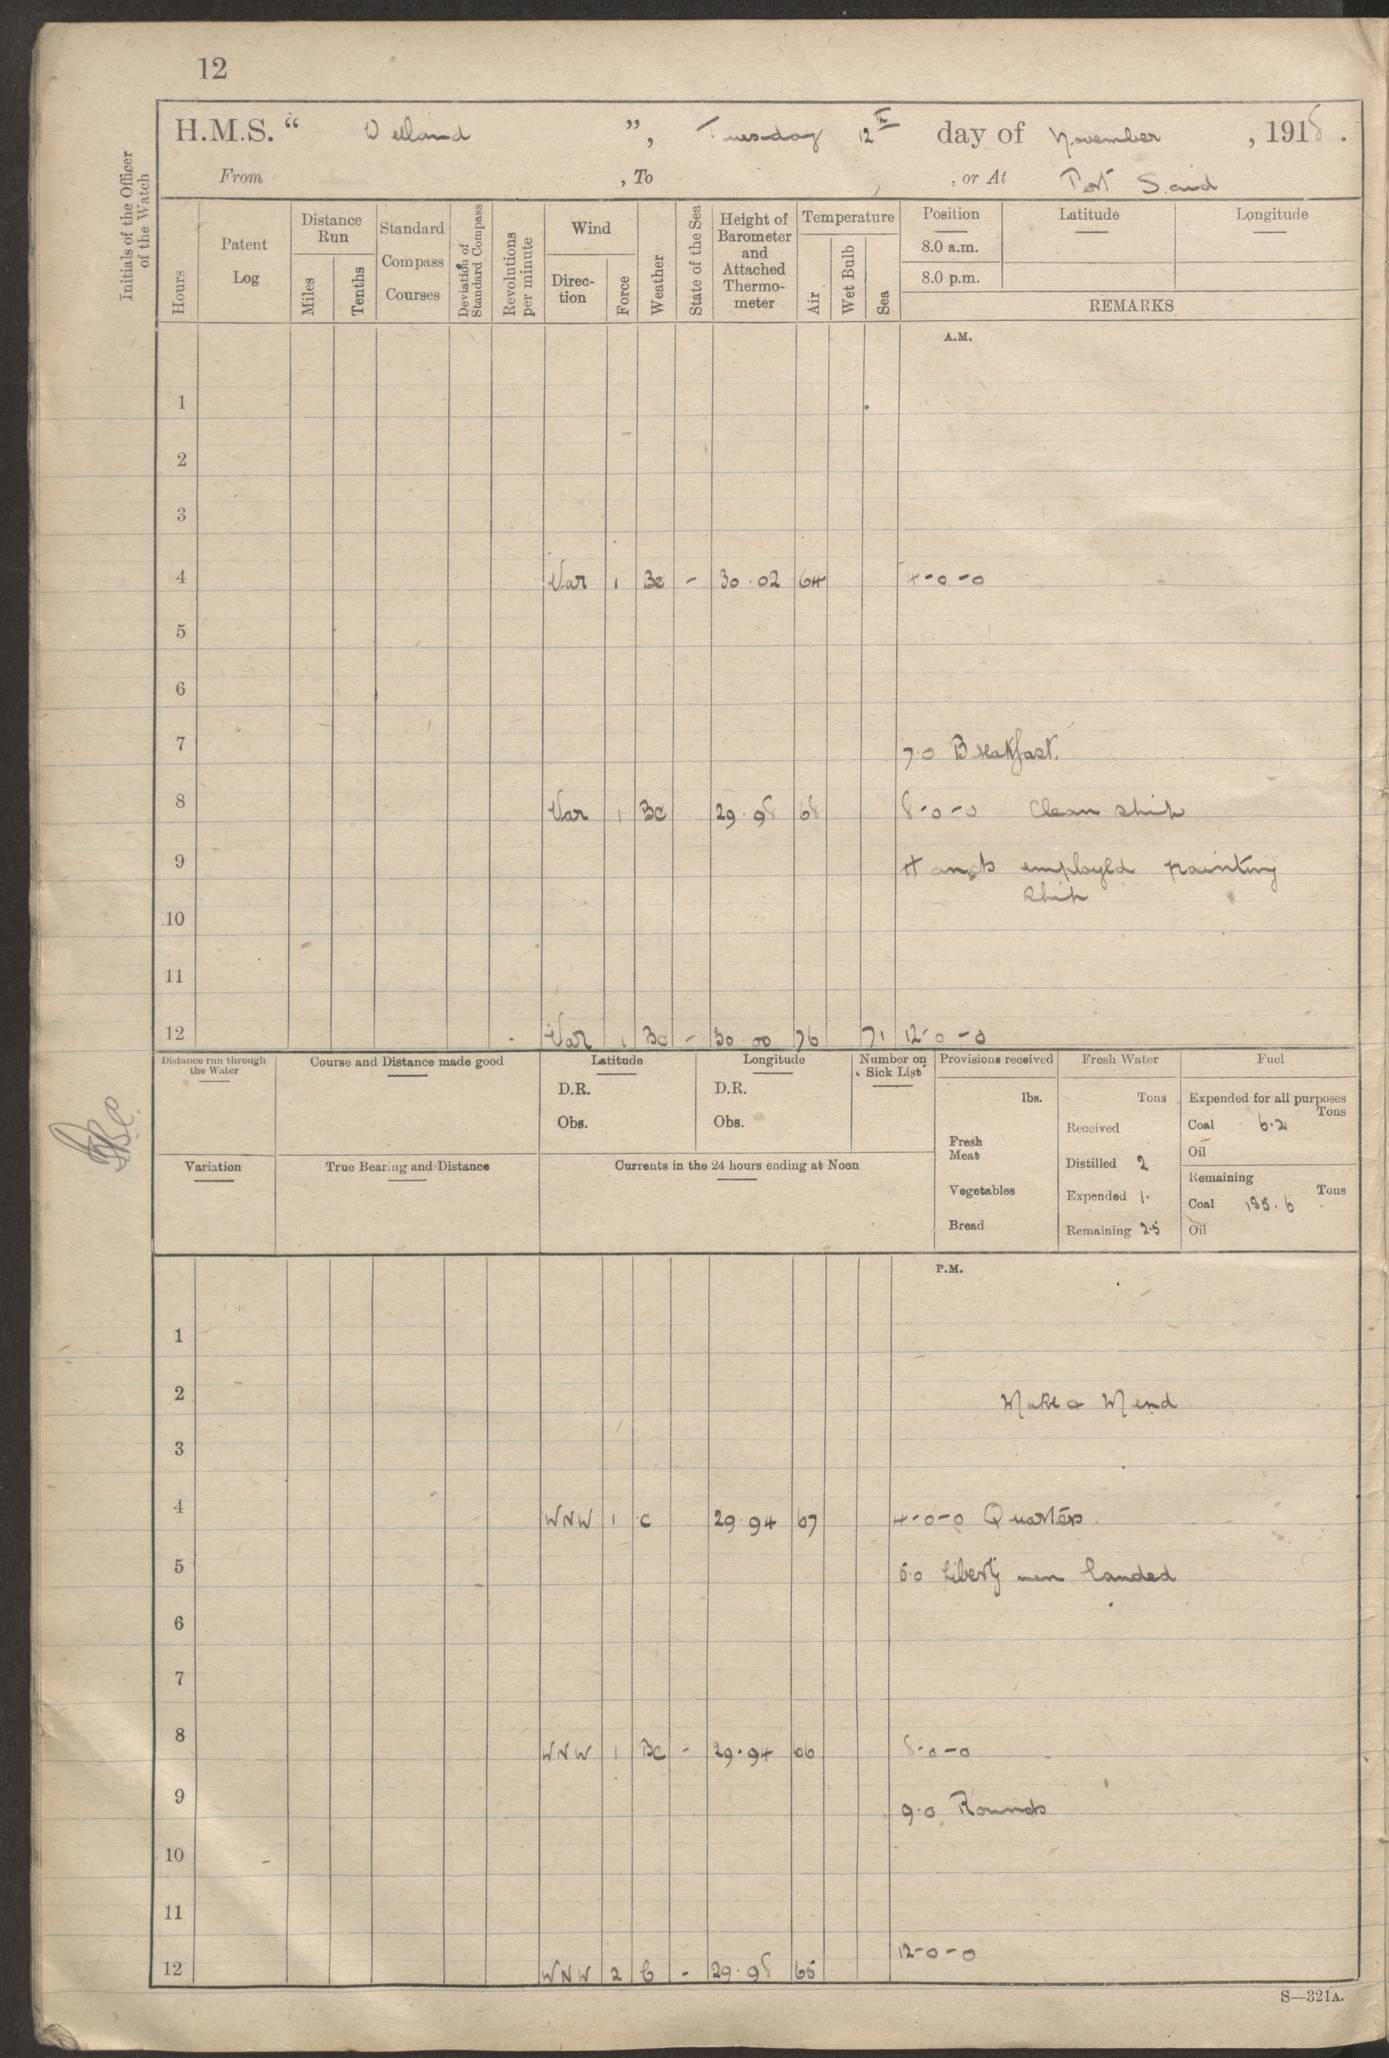 12
H.M.S. “ Welland ”, Tuesday 12th day of November , 1918 .
From , To , or At Port Said
Initials of the Officer of the Watch
Hours
Patent Log
Distance Run
Miles
Tenths
Standard Compass Courses
Deviation of Standard Compass
Revolutions per minute
Wind
Direc-tion
Force
Weather
State of the Sea
Height of Barometer and Attached Thermo-meter
Temperature
Air
Wet Bulb
Sea
Position
8.0 a.m.
8.0 p.m.
Latitude
Longitude
REMARKS
A.M.
1
2
3
4 Var 1 Bc - 30.02 64 4-0-0
5
6
7 7.0 Breakfast.
8 Var 1 Bc 29.98 68 8-0-0 Clean ship
9 Hands employed painting
ship
10
11
12 Var 1 Bc - 30.00 76 71 12-0-0
Distance run through the Water
Course and Distance made good
Latitude
D.R.
Obs.
Longitude
D.R.
Obs.
Number on Sick List
Provisions received
lbs.
Fresh Meat
Vegetables
Bread
Fresh Water
Tons
Received
Distilled 2
Expended 1.
Remaining 25
Fuel
Expended for all purposes
Tons
Coal 6.2
Oil –
Remaining
Tons
Coal 185.6
Oil
Variation
True Bearing and Distance
Currents in the 24 hours ending at Noon
P.M.
1
2 Make & Mend
3
4 WNW 1 C 29.94 67 4-0-0 Quarters
5 5.0 Liberty men landed
6
7
8 WNW 1 Bc - 29.94 66 8-0-0
9 9.0 Rounds
10
11
12 WNW 2 C - 29.98 65 12-0-0
S—321A.